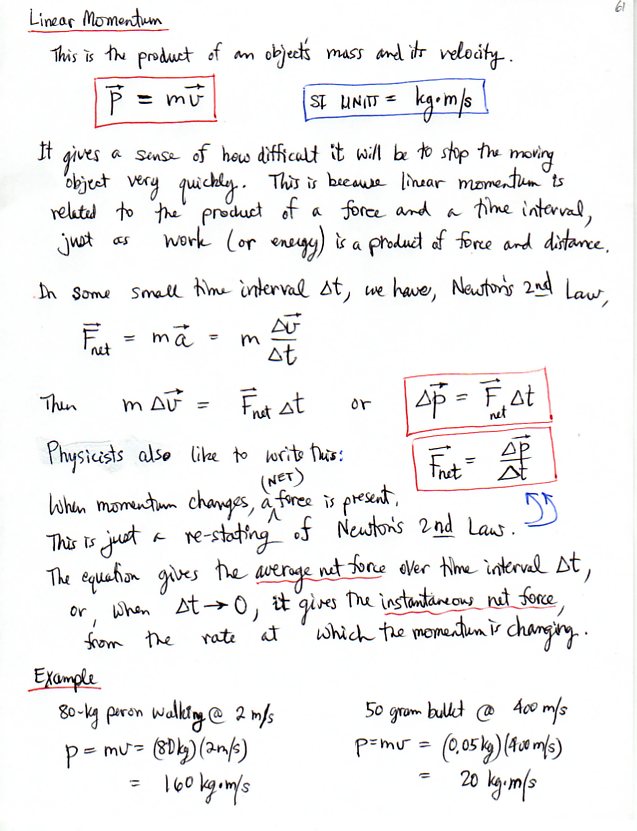 61
Linear Momentum
This is the product of an object's mass and its velocity.
p⃗ = mv⃗    SI UNITS = kg·m/s
It gives a sense of how difficult it will be to stop the moving
object very quickly. This is because linear momentum is
related to the product of a force and a time interval,
just as work (or energy) is a product of force and distance.
In some small time interval Δt, we have, Newton's 2nd Law,
F⃗net = ma⃗ = m Δv⃗/Δt
Then mΔv⃗ = F⃗net Δt or Δp⃗ = F⃗net Δt
Physicists also like to write this: F⃗net = Δp⃗/Δt
(NET)
When momentum changes, a force is present.
This is just a re-stating of Newton's 2nd Law.
The equation gives the average net force over time interval Δt,
or, when Δt → 0, it gives the instantaneous net force,
from the rate at which the momentum is changing.
Example
80-kg peron walking @ 2 m/s    50 gram bullet @ 400 m/s
p = mv = (80kg)(2m/s)    p=mv = (0.05kg)(400m/s)
= 160 kg·m/s    = 20 kg·m/s